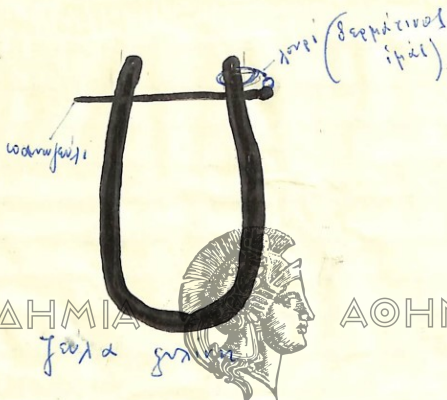 λουρί (δερμάτινος
ἱμάς)
πανωζεύλι
ΔΗΜΙΑ ΑΘΗΝ
ζεύλα ξύλινη